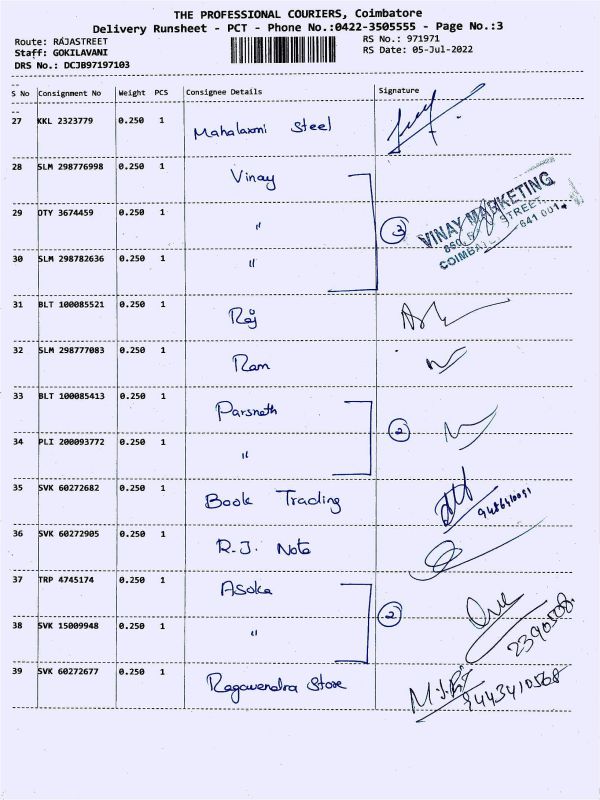 THE PROFESSIONAL COURIERS, Coimbatore
Delivery Runsheet - PCT - Phone No.:0422-3505555 - Page No.:3
Route: RAJASTREET
RS No.: 971971
Staff: GOKILAVANI
RS Date: 05-Jul-2022
DRS No.: DCJB97197103
S No Consignment No Weight PCS Consignee Details Signature
27 KKL 2323779 0.250 1 Mahalaxmi Steel
28 SLM 298776998 0.250 1 Vinay
29 OTY 3674459 0.250 1 " 3
VINAY MARKETING
STREET
641 001
30 SLM 298782636 0.250 1 "
31 BLT 100085521 0.250 1 Raj
32 SLM 298777083 0.250 1 Ram
33 BLT 100085413 0.250 1 Parsnath
2
34 PLI 200093772 0.250 1 "
35 SVK 60272682 0.250 1 Book Trading
36 SVK 60272905 0.250 1 R.J. Note
37 TRP 4745174 0.250 1 Asoka
2
38 SVK 15009948 0.250 1 " 2390508
39 SVK 60272677 0.250 1 Ragavendra Store
9443410568